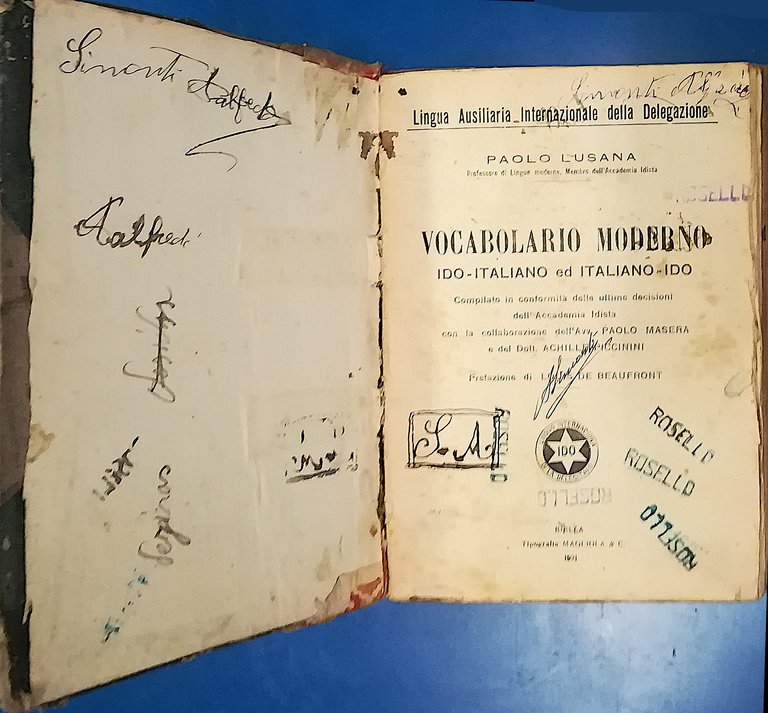 Sinanti
Aalfredo
Aalfredo
S. A.
Lingua Ausiliaria Internazionale della Delegazione
PAOLO LUSANA
Professore di Lingue moderne, Membro dell'Accademia Idista
ROSELLO
VOCABOLARIO MODERNO
IDO-ITALIANO ed ITALIANO-IDO
Compilato in conformità delle ultime decisioni
dell'Accademia Idista
con la collaborazione dell'Avv. PAOLO MASERA
e del Dott. ACHILLE PICCININI
Prefazione di DE BEAUFRONT
S. A.
ROSELLO
IDO
ROSELLO
ROSELLO
ROSELLO
ROSELLO
BIELLA
Tipografia MAGLIOLA & C.